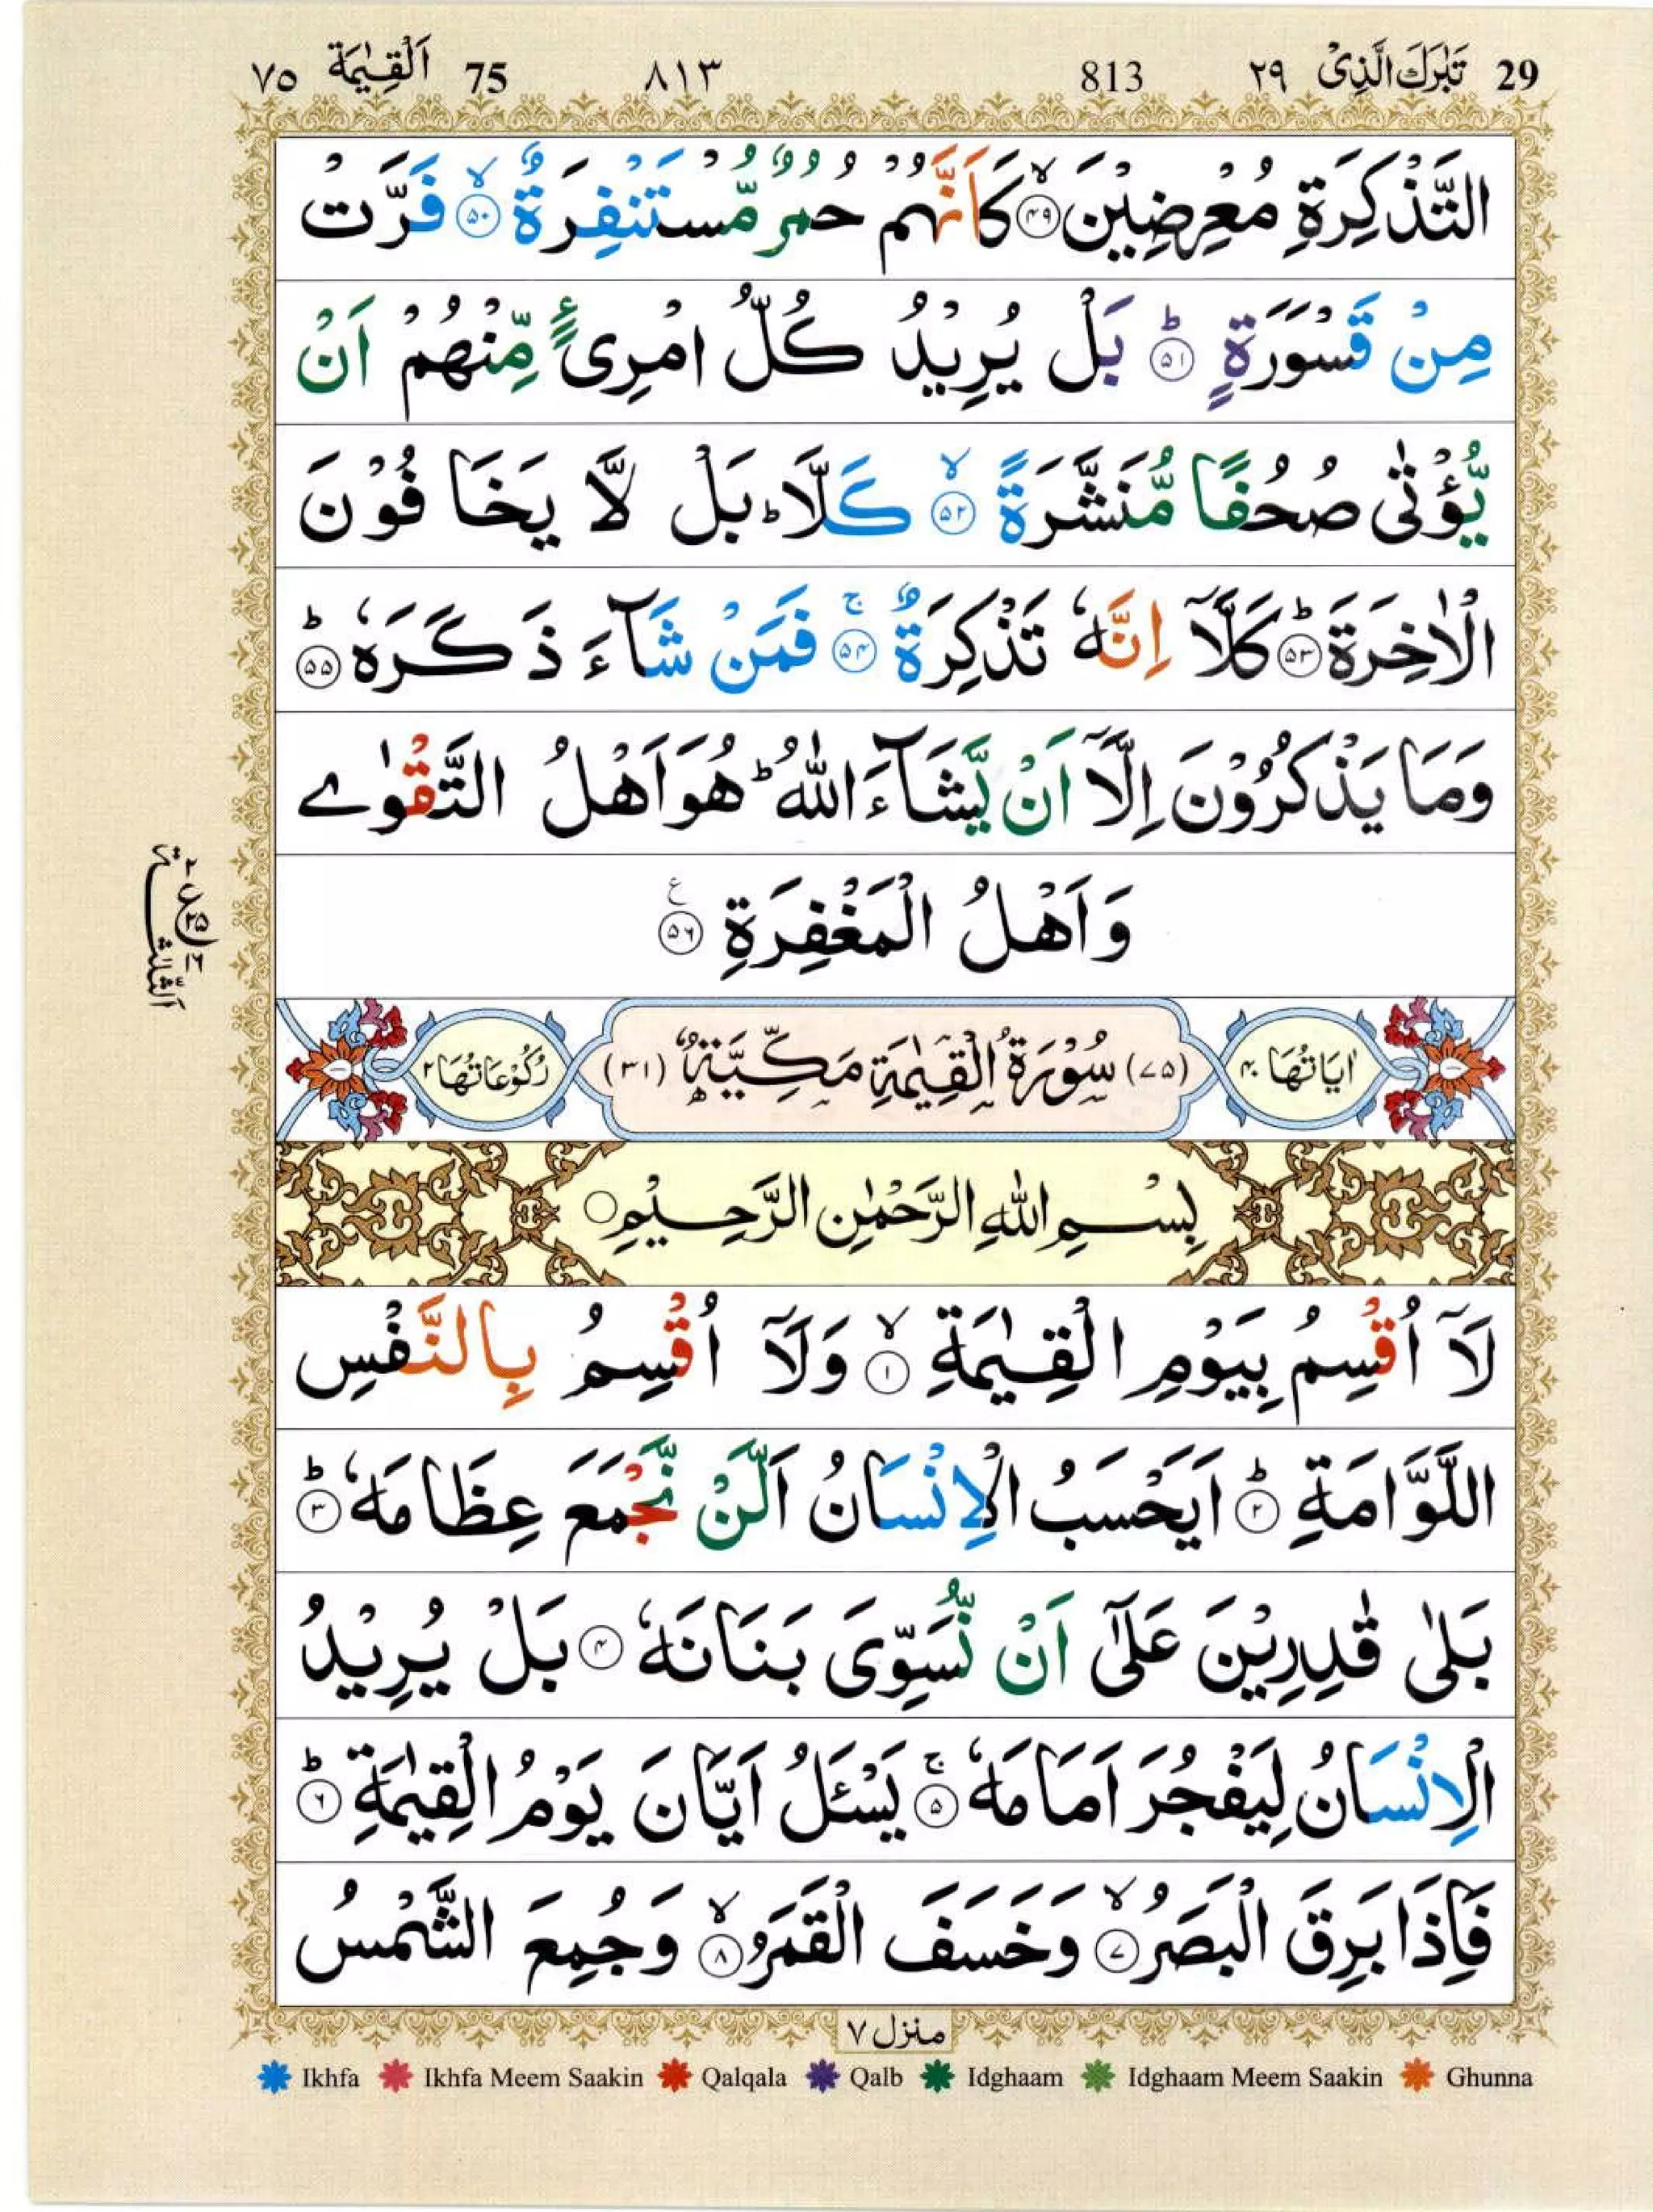 29 تَبٰرَكَ الَّذِیْ ٢٩ 813 ٨١٣ 75 اَلْقِيٰمَة ٧٥
التَّذْكِرَةِ مُعْرِضِیْنَ ﴿۴۹﴾ۙ كَاَنَّهُمْ حُمُرٌ مُّسْتَنْفِرَةٌ ﴿۵۰﴾ۙ فَرَّتْ
مِنْ قَسْوَرَةٍ ﴿۵۱﴾ؕ بَلْ یُرِیْدُ كُلُّ امْرِئٍ مِّنْهُمْ اَنْ
یُّؤْتٰی صُحُفًا مُّنَشَّرَةً ﴿۵۲﴾ۙ كَلَّا ؕ بَلْ لَّا یَخَافُوْنَ
الْاٰخِرَةَ ﴿۵۳﴾ؕ كَلَّاۤ اِنَّهٗ تَذْكِرَةٌ ﴿۵۴﴾ۚ فَمَنْ شَآءَ ذَكَرَهٗ ﴿۵۵﴾ؕ
وَمَا یَذْكُرُوْنَ اِلَّاۤ اَنْ یَّشَآءَ اللّٰهُ ؕ هُوَ اَهْلُ التَّقْوٰے
وَاَهْلُ الْمَغْفِرَةِ ﴿۵۶﴾ ع
اَلثّلٰثة
اٰیَاتُهَا ۴۰ (۷۵) سُوْرَةُ الْقِیٰمَةِ مَكِّیَّةٌ (۳۱) رُكُوْعَاتُهَا ۲
بِسْمِ اللّٰهِ الرَّحْمٰنِ الرَّحِیْمِ
لَاۤ اُقْسِمُ بِیَوْمِ الْقِیٰمَةِ ﴿۱﴾ۙ وَلَاۤ اُقْسِمُ بِالنَّفْسِ
اللَّوَّامَةِ ﴿۲﴾ؕ اَیَحْسَبُ الْاِنْسَانُ اَلَّنْ نَّجْمَعَ عِظَامَهٗ ﴿۳﴾ؕ
بَلٰی قٰدِرِیْنَ عَلٰۤی اَنْ نُّسَوِّیَ بَنَانَهٗ ﴿۴﴾ بَلْ یُرِیْدُ
الْاِنْسَانُ لِیَفْجُرَ اَمَامَهٗ ﴿۵﴾ۚ یَسْـَٔلُ اَیَّانَ یَوْمُ الْقِیٰمَةِ ﴿۶﴾ؕ
فَاِذَا بَرِقَ الْبَصَرُ ﴿۷﴾ۙ وَخَسَفَ الْقَمَرُ ﴿۸﴾ۙ وَجُمِعَ الشَّمْسُ
منزل ٧
Ikhfa Ikhfa Meem Saakin Qalqala Qalb Idghaam Idghaam Meem Saakin Ghunna